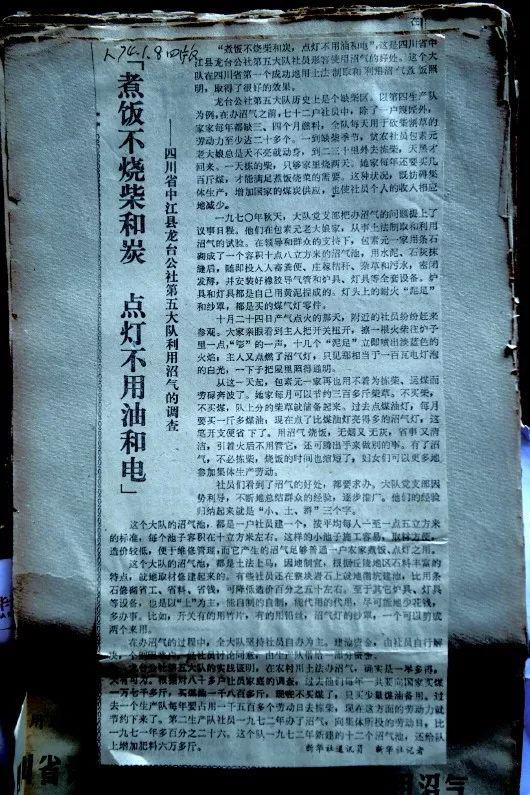 74.1.8 四版
「煮饭不烧柴和炭 点灯不用油和电」
——四川省中江县龙台公社第五大队利用沼气的调查
“煮饭不烧柴和炭,点灯不用油和电”,这是四川省中
江县龙台公社第五大队社员形容使用沼气的好处。这个大
队在四川省第一个成功地用土法制取和利用沼气煮饭照
明,取得了很好的效果。
龙台公社第五大队历史上是个缺柴区。以第四生产队
为例,在办沼气之前,七十二户社员中,除了一户
家家每年都缺三、四个月燃料,全队每天用于砍柴割草的
劳动力至少达二十多个。一到缺柴季节,贫农社员包素元
老大娘总是天不亮就动身,到二三十里外去拣柴,天黑才
回来。一天拣的柴,只够家里烧两天。她家每年还要买几
百斤煤,才能满足煮饭烧菜的需要。这种状况,既妨碍集
体生产,增加国家的煤炭供应,也使社员个人的收入相应
地减少。
一九七〇年秋天,大队党支部把办沼气的问题提上了
议事日程。他们在包素元老大娘家,从事土法制取和利用
沼气的试验。在领导和群众的支持下,包素元一家用条石
砌成了一个容积十点八立方米的沼气池,用水泥、石灰抹
缝后,随即投入人畜粪便、庄稼秸秆、杂草和污水,密闭
发酵,并安装好橡胶导气管和炉具、灯具等全套设备。炉
具和灯具都是自己用黄泥捏成的。灯头上的耐火“泥足”
和纱罩,都是买的煤气灯零件。
十月二十四日产气点火的那天,附近的社员纷纷赶来
参观。大家亲眼看到主人把开关扭开,擦一根火柴往炉子
里一点,“嘭”的一声,十几个“泥足”立即喷出淡蓝色的
火焰;主人又点燃了沼气灯,只见那相当于一百瓦电灯泡
的白光,一下子把屋里照得通明。
从这一天起,包素元一家再也用不着为拣柴、运煤而
劳碌奔波了。她家每月可以节约三百多斤柴草。不买柴,
不买煤,队上分的柴草就储备起来。过去点煤油灯,每月
要买一斤多煤油,现在点了比煤油灯亮得多的沼气灯,这
笔开支便省下了。用沼气烧饭,无烟又无灰,省事又清
洁,引着火后不用管它,还可腾出手来做别的事。有了沼
气,不必拣柴,烧饭的时间也缩短了,妇女们可以更多地
参加集体生产劳动。
社员们看到了沼气的好处,都要求办。大队党支部因
势利导,不断地总结群众的经验,逐步推广。他们的经验
归纳起来就是“小、土、群”三个字。
这个大队的沼气池,都是一户社员建一个,按平均每人一至一点五立方米
的标准,每个池子容积在十立方米左右。这样的小池子施工容易,取料方便,
造价较低,便于维修管理,而它产生的沼气足够普通一户农家煮饭、点灯之用。
这个大队的沼气池,都是土法上马,因地制宜,根据丘陵地区石料丰富的
特点,就地取材修建起来的。有些社员还在整块岩石上就地凿坑建池,比用条
石修砌省工、省料、省钱,可降低造价百分之五十左右。至于其它炉具、灯具
等设备,也是以“土”为主,能自制的自制,能代用的代用,尽可能地少花钱,
多办事。比如,开关有的用竹片,有的用铅丝,沼气灯的纱罩,一个可以剪成
两个来用。
在办沼气的过程中,全大队坚持社员自办为主,建池资金,由社员自行解
决,个别困难户,社员讨论同意,由生产队借给一部分资金。
龙台公社第五大队的实践证明,在农村用土法办沼气,确实是一举多得,
大有可为。根据对八十多户社员家庭的调查,过去他们每年一共要向国家买煤
一万七千多斤,买煤油一千八百多斤,现在不买煤了,只买少量煤油备用。过
去一个生产队每年要占用一千五百多个劳动日去拣柴,现在这方面的劳动力就
节约下来了。第二生产队社员一九七二年办了沼气,向集体所投的劳动日,比
一九七一年多百分之二十六。这个队一九七二年新建的十二个沼气池,还给队
上增加肥料六万多斤。
新华社通讯员 新华社记者
川省
用沼气